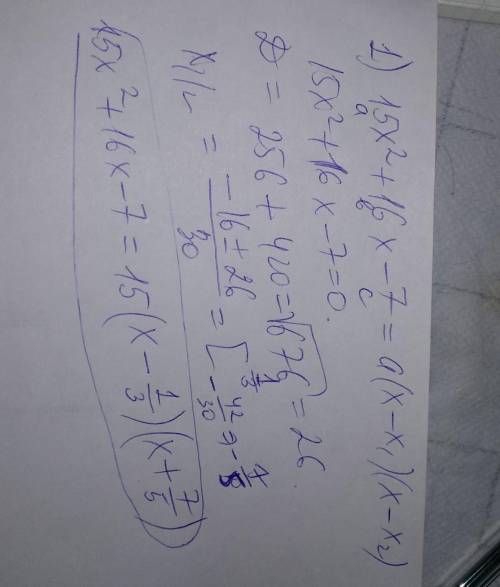 1) 15x² + 16x - 7 = a(x - x₁)(x - x₂)
a b c
15x² + 16x - 7 = 0.
D = 256 + 420 = √676 = 26.
x₁/₂ = (-16 ± 26)/30 = [ 1/3
-42/30 = -7/5
15x² + 16x - 7 = 15(x - 1/3)(x + 7/5)